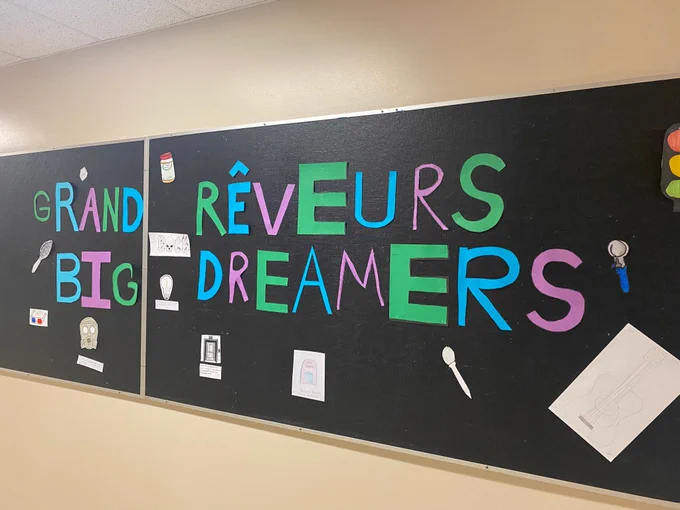 GRAND RÊVEURS
BIG DREAMERS